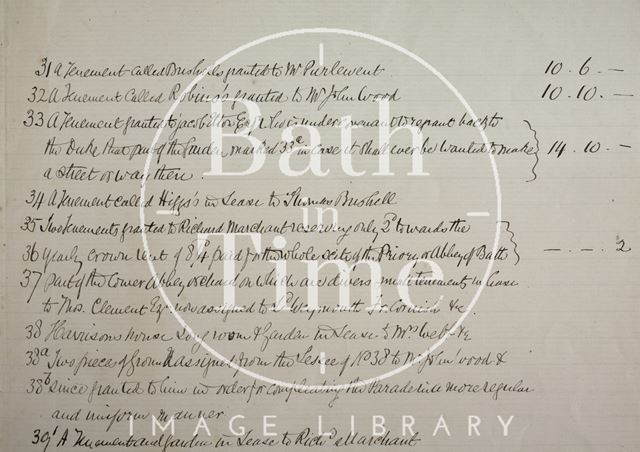 31 A Tenement called Bushells granted to Mr Purlewent 10 . 6 . —
32 A Tenement Called Robins's granted to Mr John Wood 10 . 10 . —
33 A Tenement granted to Jacob Elton Esqr He is under covenant to regrant back to
the Duke that part of the Garden marked 33a in case it shall ever be wanted to make 14 . 10 . —
a street or way there .
34 A Tenement called Higgs's in Lease to Thomas Bushell
35 Two Tenements granted to Richard Marchant reserving only 2d towards the
36 yearly crown rent of paid for the whole scite of the Priory or Abbey of Bath — . — . 2
37 Part of the Lower Abbey orchard on which are divers small tenements in lease
to Thos. Clement Esqr now assigned to Dr Weymouth &c
38 Harrisons house Long room & Garden in Lease to Mrs
38a Two pieces of Ground assigned from the Lessee of No 38 to Mr John Wood &
38b since granted to him in order for compleating the Parade in a more regular
and uniform manner
39 A Tenement and garden in Lease to Richd Marchant
Bath
in
Time
IMAGE LIBRARY